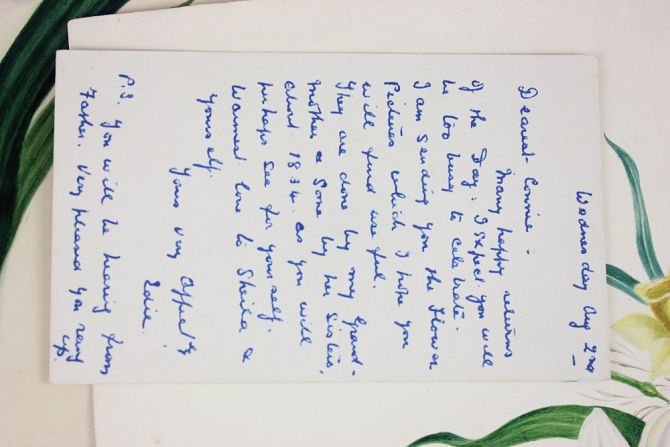 Wednesday Aug 2nd
Dearest Connie -
Many happy returns
of the Day. I expect you will
be too busy to celebrate.
I am sending you the Flower
Pictures which I hope you
will find useful.
They are done by my Grand-
mother & some by her sisters,
about 1834. as you will
perhaps see for yourself.
Warmest love to Sheila &
yourself.
Yours very affect'ly
Edie.
P.S. You will be hearing from
Father. Very pleased you rang
up.